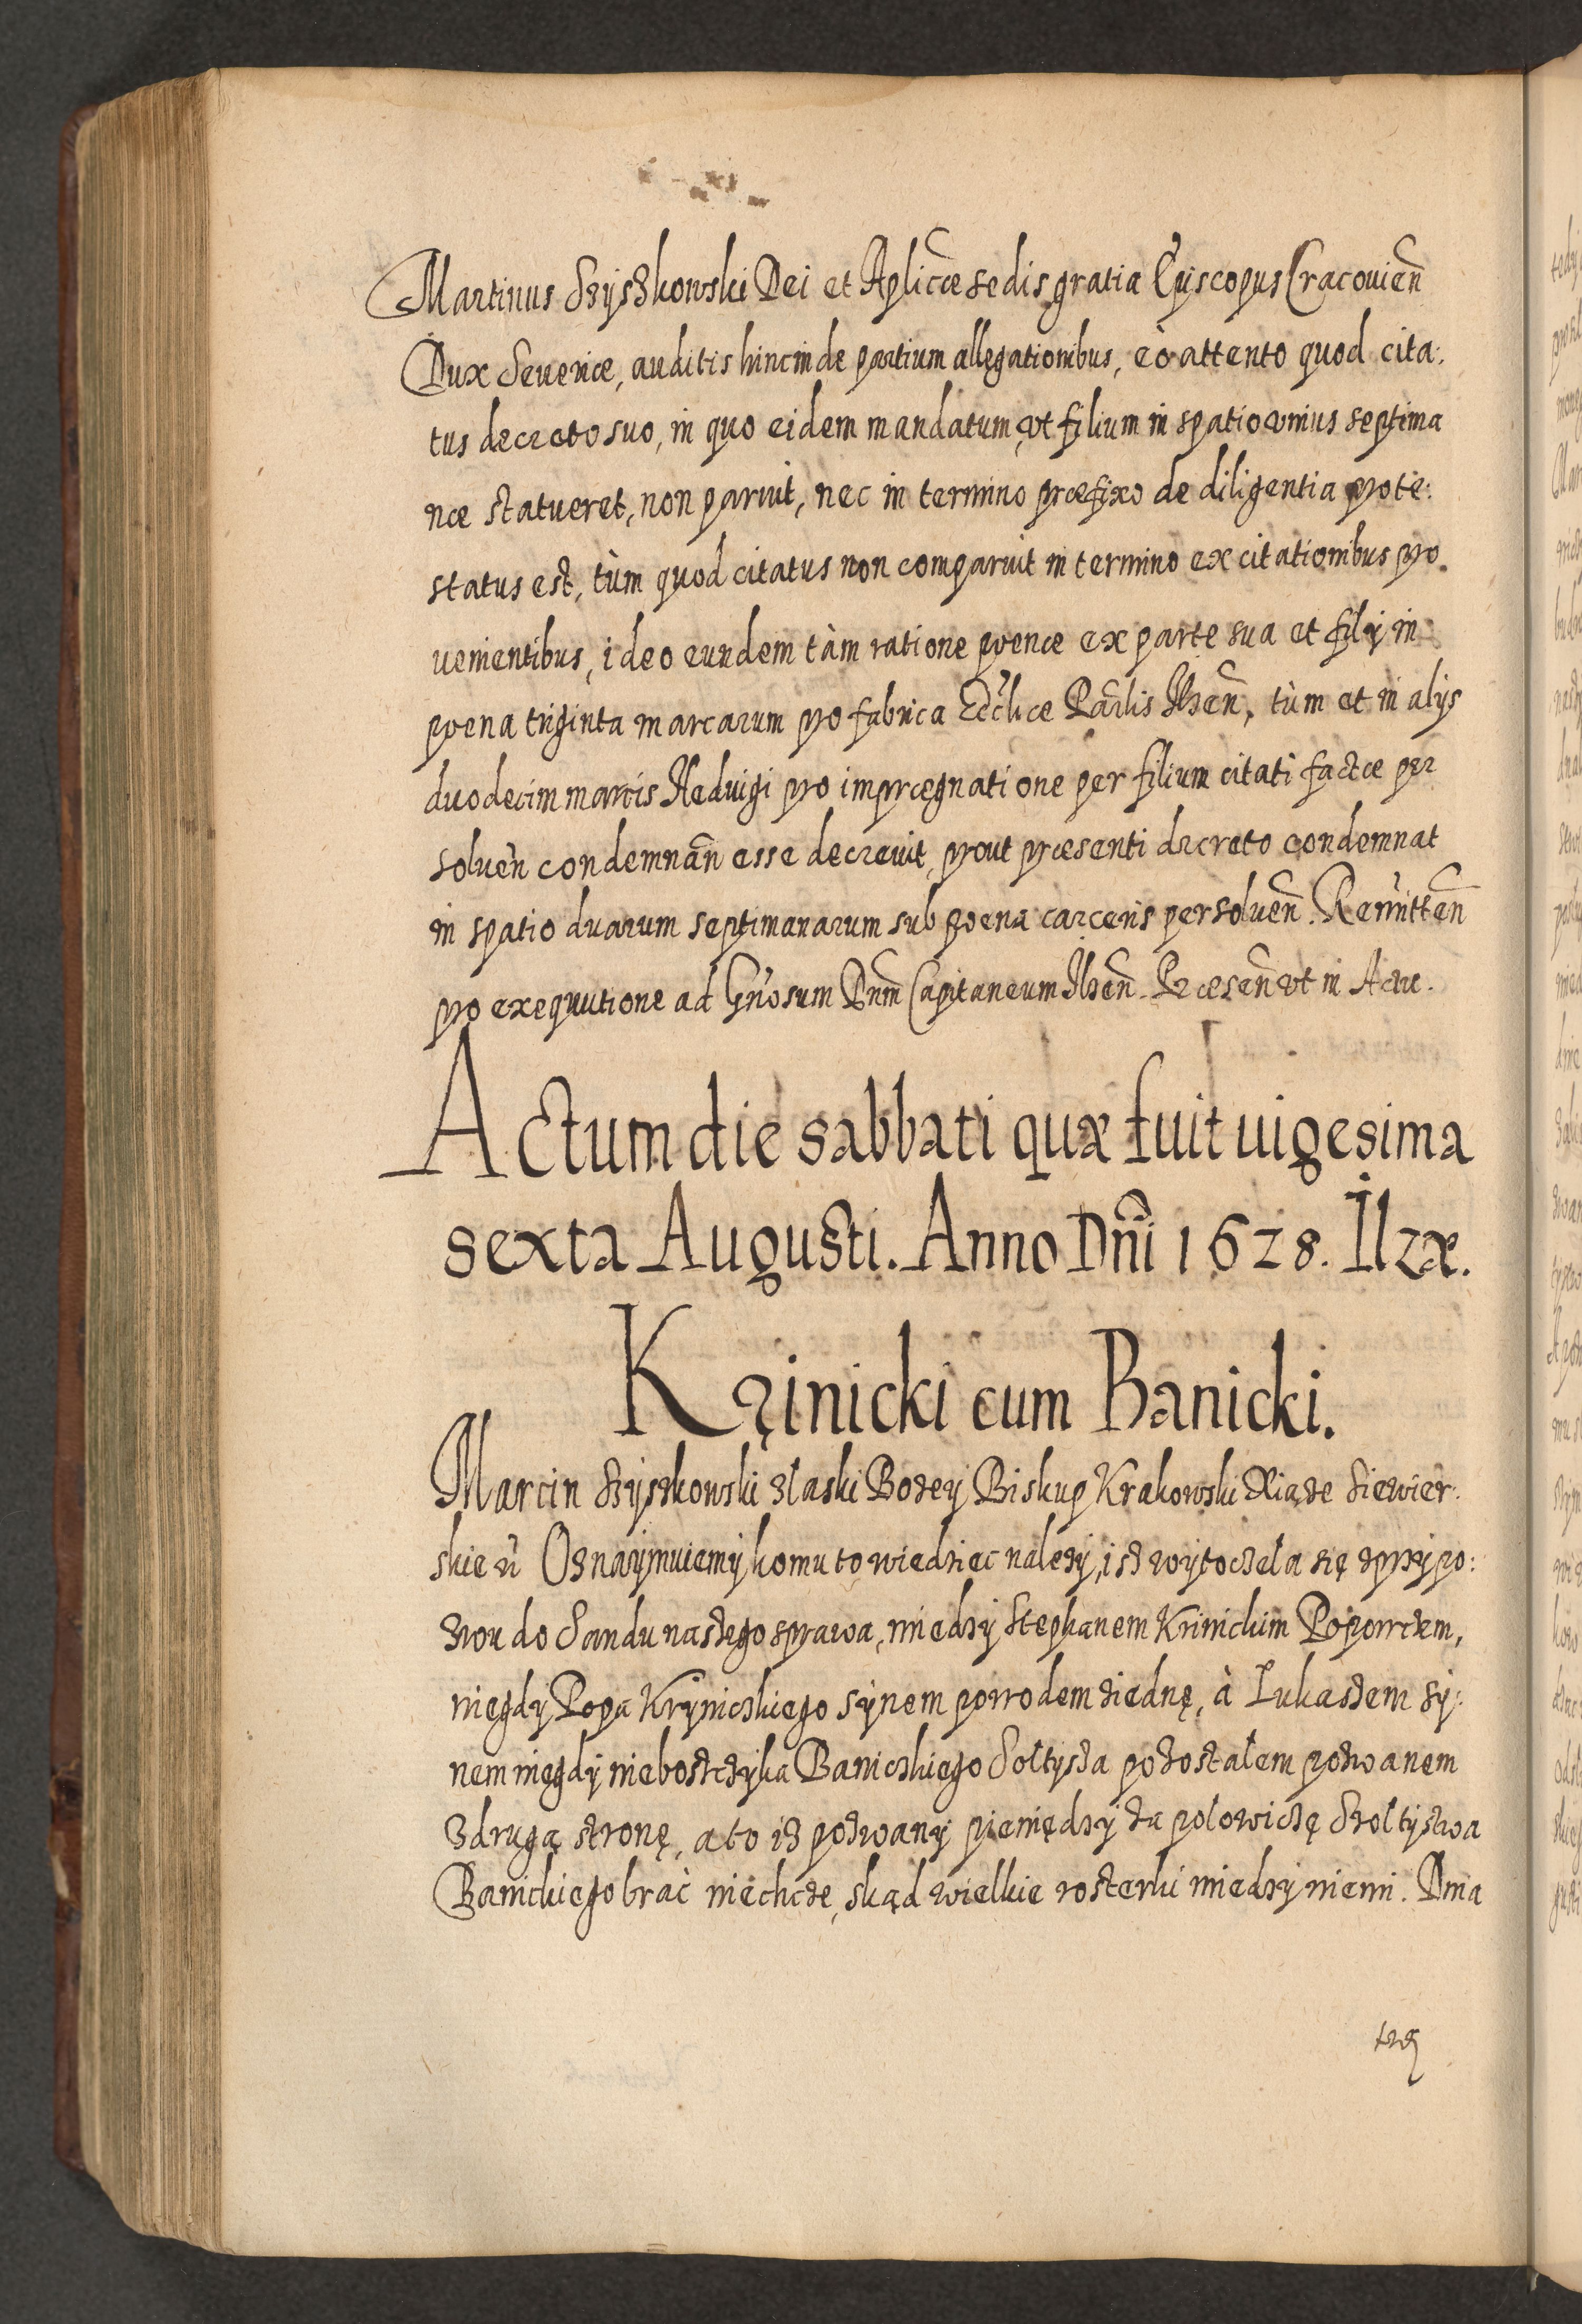 Martinus Szyszkowski Dei et Aplicæ sedis gratia Episcopus Cracovien̄
Dux Seueriæ, auditis hincinde partium allegationibus, eò attento quod cita:
tus decreto suo, in quo eidem mandatum, vt filium in spatio vnius septima
næ statueret, non paruit, nec in termino præfixo de diligentia prote:
status est, tùm quod citatus non comparuit in termino ex citationibus pro
uenientibus, ideo eundem tàm ratione poenæ ex parte sua et filij in
poena triginta marcarum pro fabrica Eccliæ Parlis Ilzen̄, tùm et in alijs
duodecim marcis Heduigi pro imprægnatione per filium citati factæ per
soluen̄ condemnan̄ esse decreuit, prout præsenti decreto condemnat
in spatio duarum septimanarum sub poena carceris persoluen̄. Remitten̄
pro exequutione ad Gn̄osum Dnm̄ Capitaneum Ilzen̄. Præsen̄ vt in Actu.
Actum die sabbati quæ fuit uigesima
sexta Augusti. Anno Dn̄i 1628. Ilzæ.
Krzinicki cum Banicki.
Marcin Szyszkowski z łaski Bozey Biskup Krakowski Xiąze Siewier:
skie ū Oznaÿmuiemÿ komu to wiedziec nalezÿ, isz wytoczeła się zprzypo:
zwu do Sandu naszego sprawa, miedzÿ Stephanem Krinickim Popowczem,
niegdÿ Popa Krÿniczkiego sÿnem powodem ziednę, à Łukaszem sÿ:
nem niegdÿ nieboszczÿka Baniczkiego Sołtysza pozostałem pozwanem
z drugą stronę, a to iz pozwany pieniędzÿ za połowiczę Szołtystwa
Banickiego brać niechcze, skąd wielkie rosterki miedzÿ niemi. Dnia